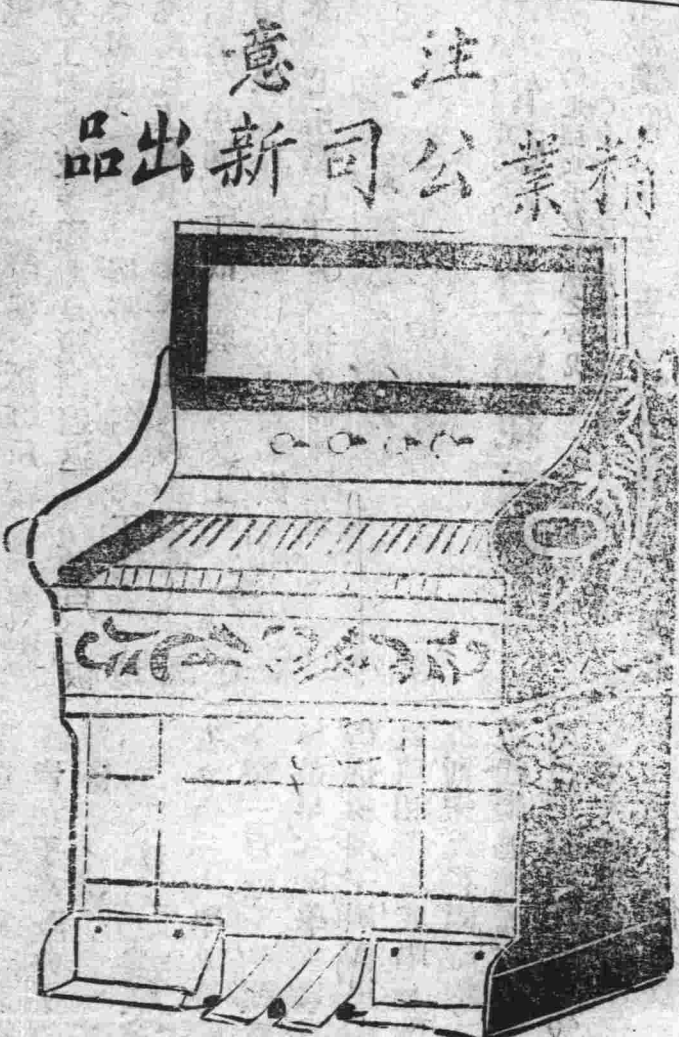 注意
精業公司新出品